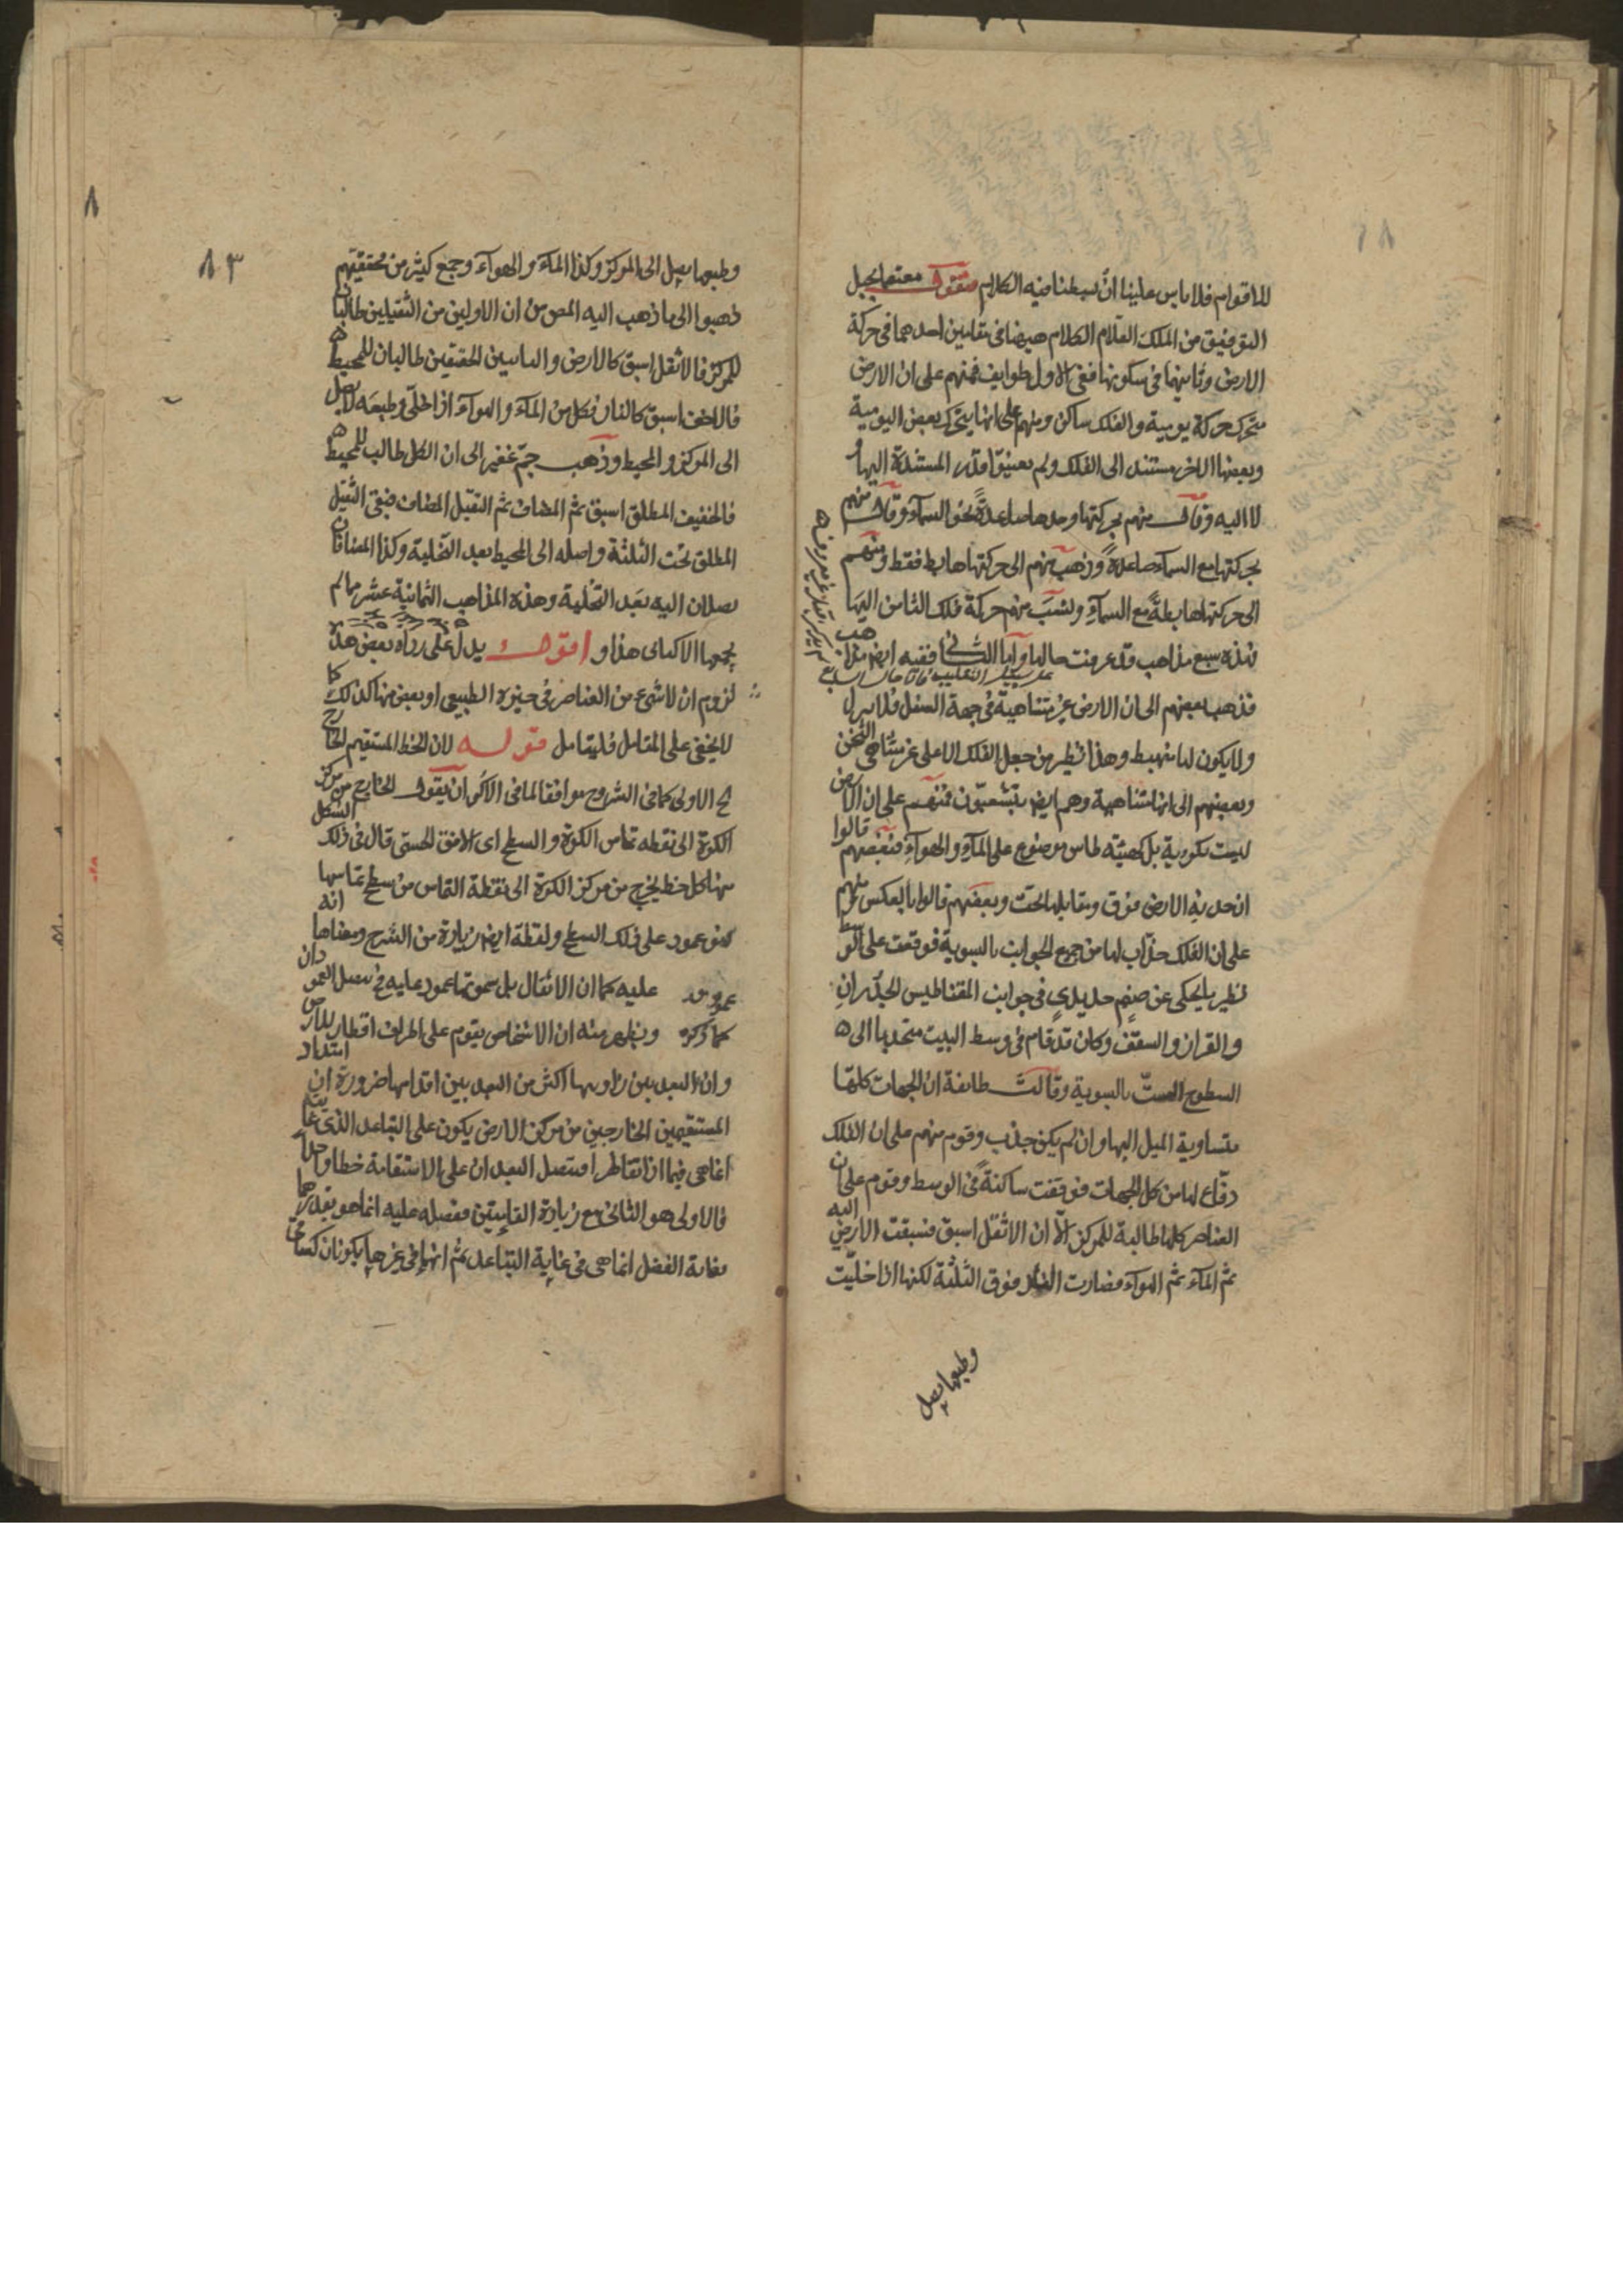 للاقوام فلا باس علينا ان بسطنا فيه الكلام فنقول معتصما بحبل
التوفيق من الملك العلام الكلام ههنا في مقامين احدهما في حركة
الارض وثانيهما في سكونها ففي الاول طوايف فمنهم على ان الارض
متحرك حركة يومية والفلك ساكن ومنهم على انها يتحرك بعض اليومية
وبعضها الاخر مستند الى الفلك ولم يعينوا قدر المستندة اليها
لا اليه وقال منهم بحركتها وحدها صاعدة نحو السماء وقال منهم
بحركتها مع السماء صاعدة وذهب منهم الى حركتها هابط فقط ومنهم
الى حركتها هابطة مع السماء ونسب منهم حركة فلك الثامن اليها
فهذه سبع مذاهب قد عرفت حالها واما الثاني ففيه ايضا مذاهب
فذهب بعضهم الى ان الارض غير متناهية في جهة السفل فلا يزل
ولا يكون لها مهبط وهذا نظير من جعل الفلك الاعلى غير متناهي الثخن
وبعضهم الى انها متناهية وهم ايضا يتشعبون فمنهم على ان الارض
ليست بكروية بل كهيئة طاس موضوع على الماء والهواء فبعضهم قالوا
ان حدبة الارض فوق ومقابلها تحت وبعضهم قالوا بالعكس ومنهم
على ان الفلك جذاب لها من جميع الجوانب بالسوية فوقعت على الوسط
نظير ما يحكى عن صنم حديدي في جوانب المقناطيس الجدران
والقران والسقف وكان قد قام في وسط البيت منجذبا الى
السطوح الست بالسوية وقالت طائفة ان الجهات كلها
متساوية الميل اليها وان لم يكن جذب وقوم منهم على ان الفلك
دفاع لها من كل الجهات فوقفت ساكنة في الوسط وقوم على ان
العناصر كلها طالبة للمركز الا ان الاثقل اسبق فسبقت الارض اليه
ثم الماء ثم الهواء فصارت النار فوق الثلثة لكنها اذا خليت
وطبعها يميل
٨٣
وطبعها يميل الى المركز وكذا الماء والهواء وجمع كثير من محققيهم
ذهبوا الى ما ذهب اليه المص من ان الاولين من الثقيلين طالبان
للمركز فالاثقل اسبق كالارض والباقيين الخفيفين طالبان للمحيط
فالاخف اسبق كالنار فكل من الماء والهواء اذا خلي وطبعه لا يميل
الى المركز والمحيط وذهب جم غفير الى ان الكل طالب للمحيط
فالخفيف المطلق اسبق ثم المضاف ثم الثقيل المضاف فبقي الثقيل
المطلق تحت الثلثة واصله الى المحيط بعد التخلية وكذا المضافان
يصلان اليه بعد التخلية وهذه المذاهب الثمانية عشر مما لم
هذا و اقول يدل على رداة بعض هذه
لزوم ان لا شيء من العناصر في حيزه الطبيعي او بعض منها كذلك كما
لا يخفى على المتامل فليتامل قوله لان الخط المستقيم الخارج
الاولى كما في الشروح موافقا لما في الاكر ان يقول الخارج من مركز
الكرة الى نقطه تماس الكرة والسطح اى الافق الحسي قال في ذلك الشكل
منها كل خط يخرج من مركز الكرة الى نقطة التماس من سطح تماسها
فهو عمود على ذلك السطح ولفظة ايضا زيادة من الشرح ومعناها انه
عمود عليه كما ان الاثقال على سموتها عمود عليه
كما ذكره ويظهر منه ان الاشخاص يقوم على اطراف اقطار للارض
وان البعد بين رؤوسها اكثر من البعد بين اقدامها ضرورة ان امتداد
المستقيمين الخارجين من مركز الارض يكون على التباعد الذى غايته
انما هى فيما اذا تقاطرا فيتصل البعدان على الاستقامة خطا واحدا
فالاولى هو الثاني مع زيادة القامتين ففضله عليه انما هو بقدرهما
فغاية الفضل انما هى في غاية التباعد ثم انها في غيرها يكونان كساقي